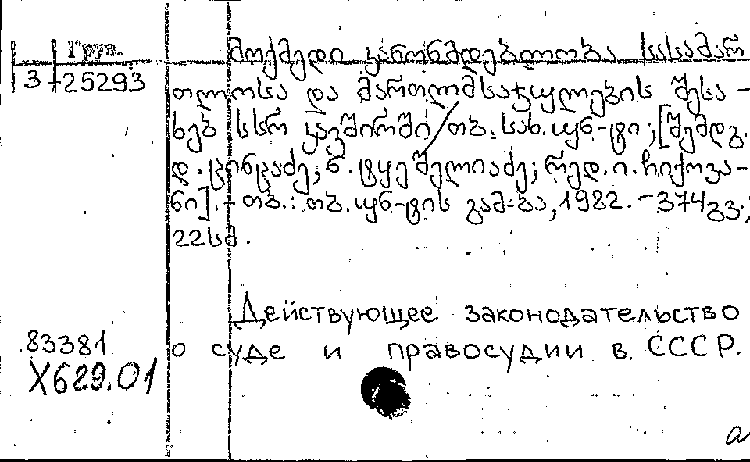 Груз.
3 25293
მოქმედი კანონმდებლობა სასამარ
თლოსა და მართლმსაჯულების შესა-
ხებ სსრ კავშირში / თბ. სახ. უნ-ტი; [შემდგ.
დ. ცინცაძე, ნ. ტყეშელიაძე; რედ. ი. ჩიქოვა-
ნი]. - თბ.: თბ. უნ-ტის გამ-ბა, 1982. - 374 გვ.;
22 სმ.
Действующее законодательство
о суде и правосудии в СССР.
83381
X629.01